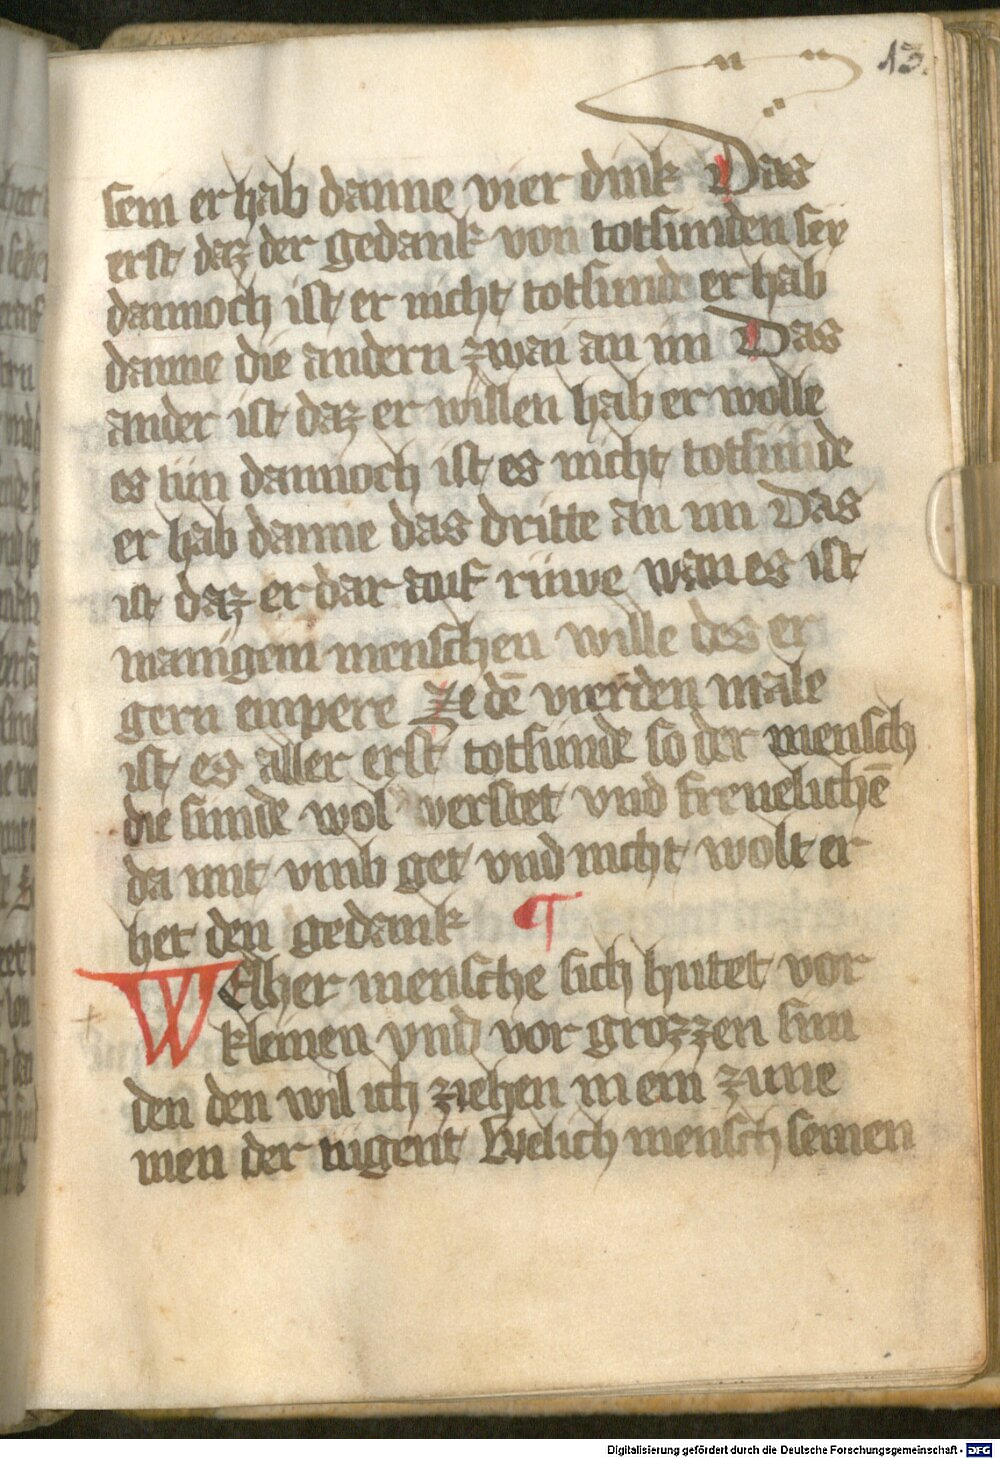 13.
sein er hab danne vier dink Das
erst daz der gedank von totsunden sey
dannoch ist er nicht totsund er hab
danne die andern zwai an im Das
ander ist daz er willen hab er wolle
es tün dannoch ist es nicht totsunde
er hab danne das dritte an im Das
ist daz er dar auf rüwe wan es ist
manigem menschen wille des er
gern empere Ze dē vierden male
ist es aller erst totsunde so der mensch
die sunde wol verstet vnd freuelichē
da mit vmb get vnd nicht wolt er
het den gedank ¶
WElher mensche sich hutet vor
kleinen vnd vor grozzen sun
den den wil ich ziehen in ein zune
men der tugent Welich mensch seinen
Digitalisierung gefördert durch die Deutsche Forschungsgemeinschaft - DFG